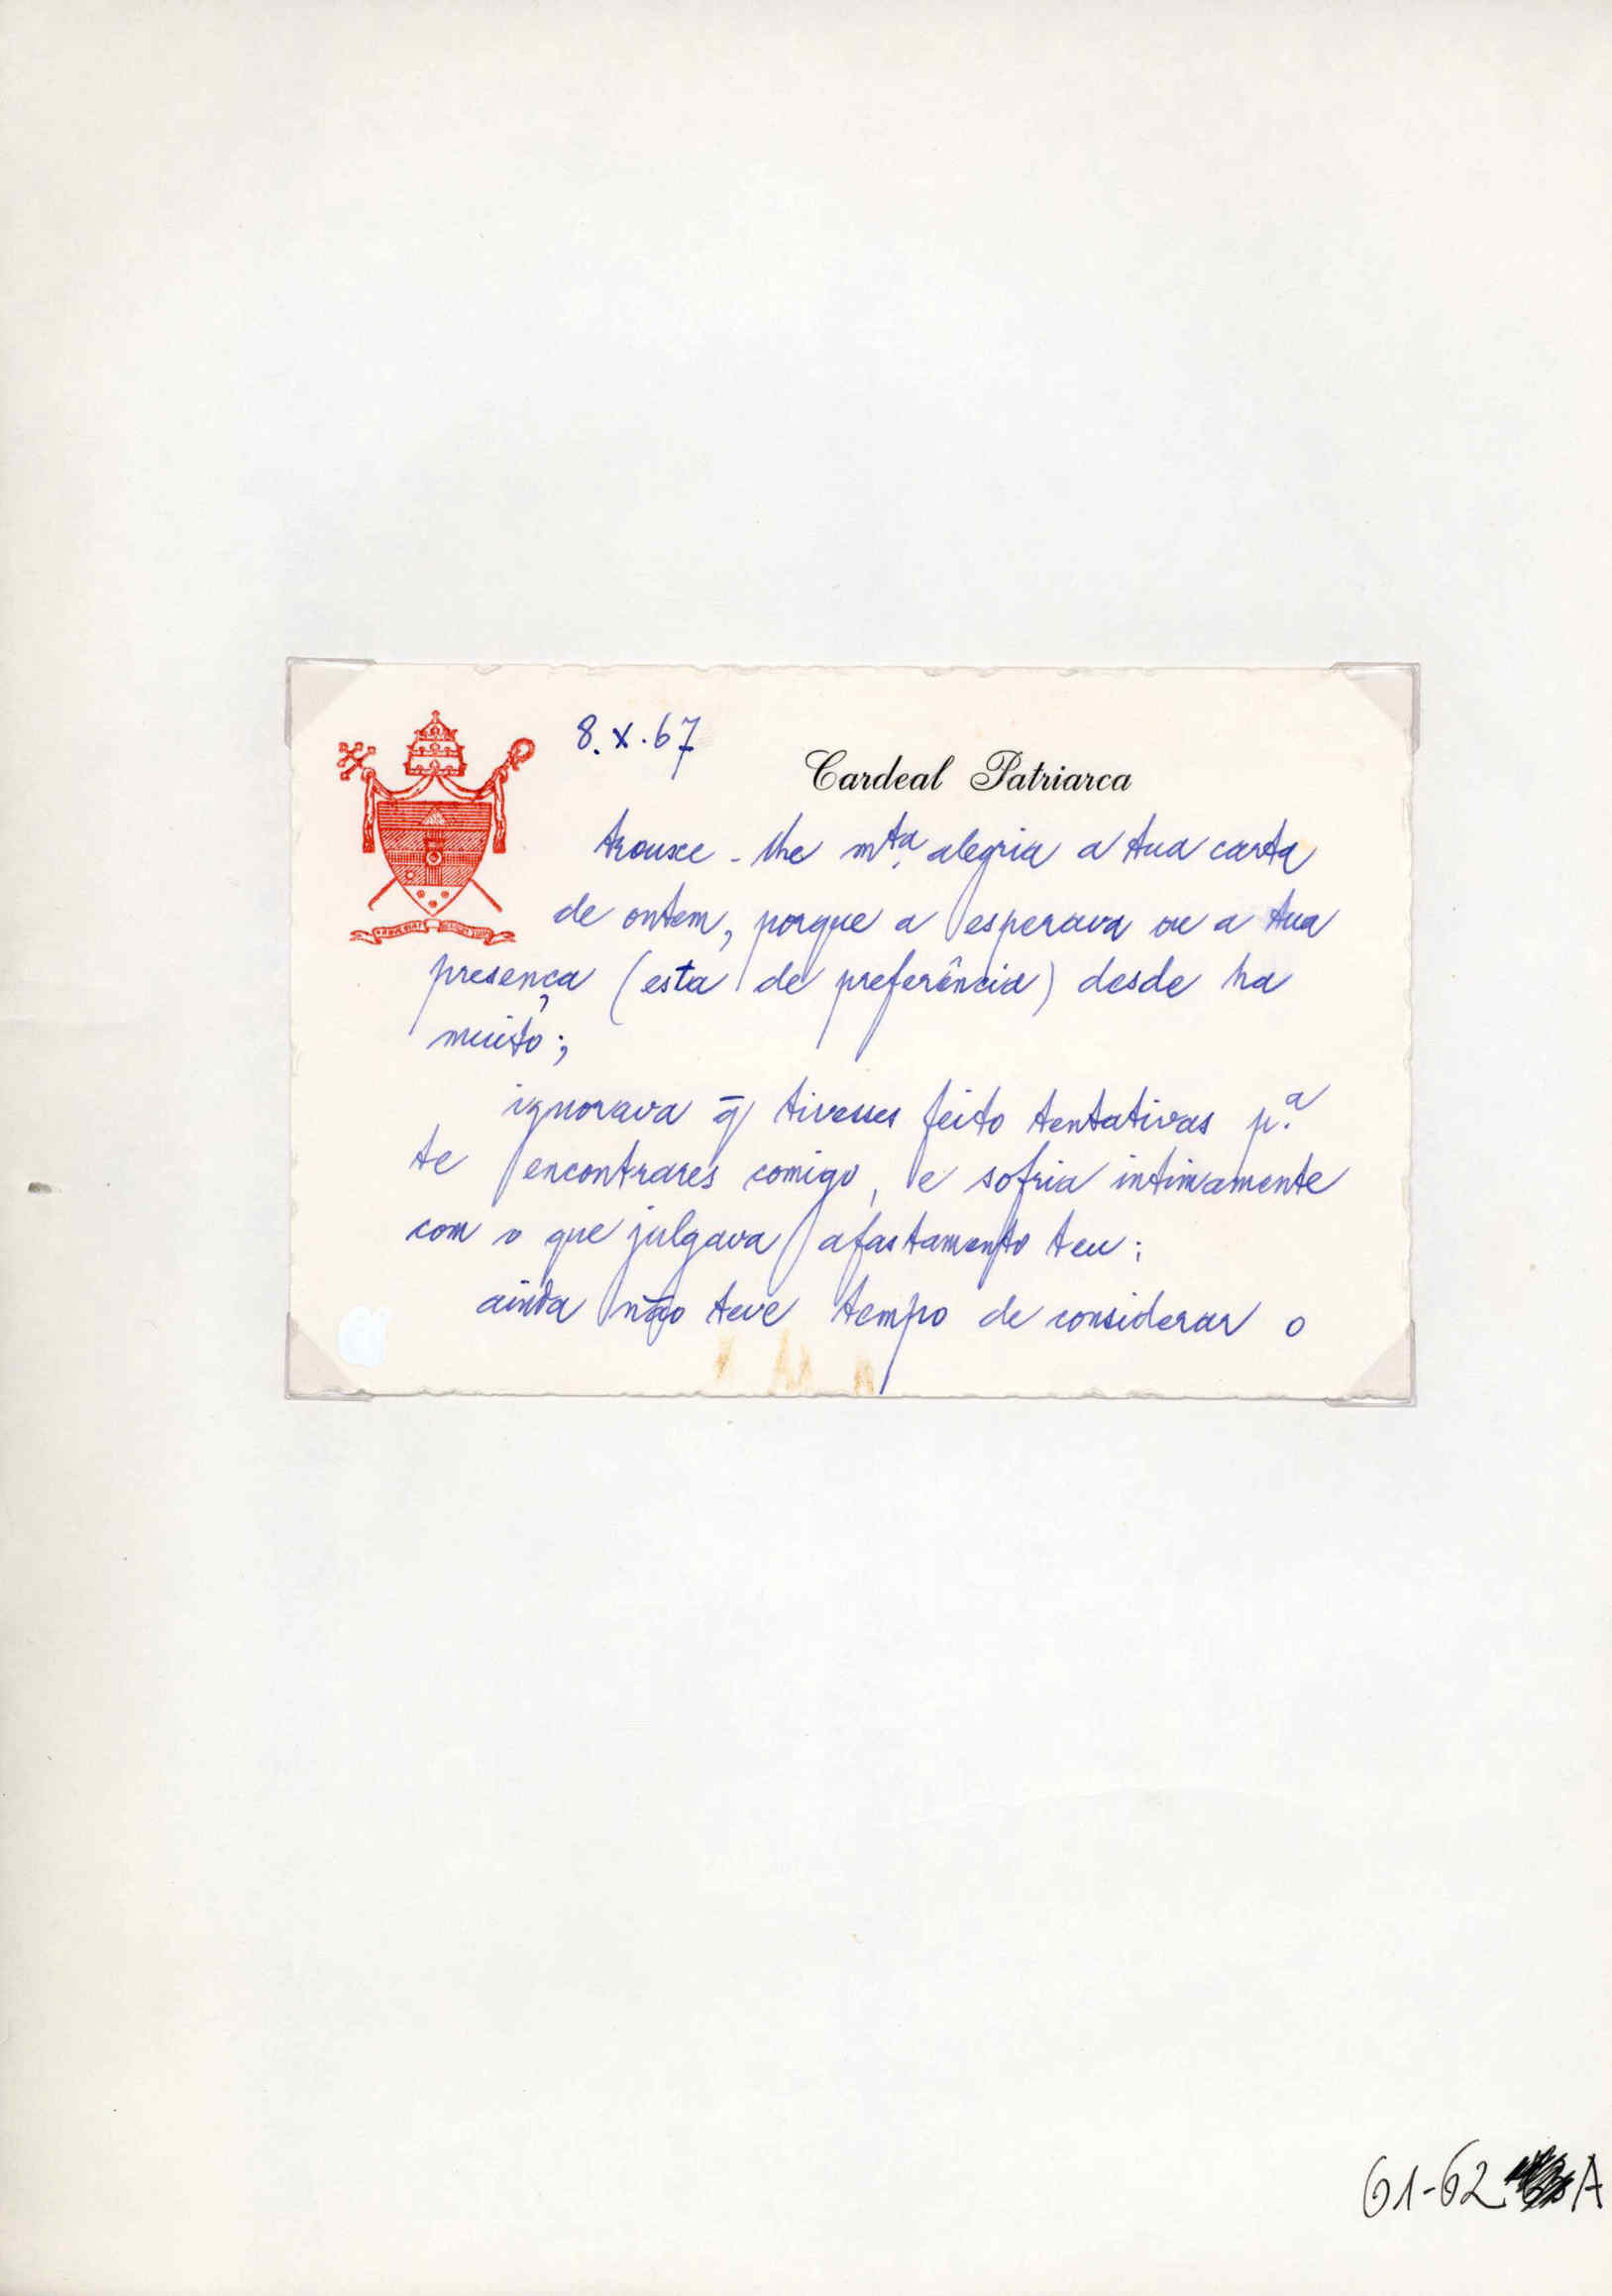 8.X.67
Cardeal Patriarca
trouxe-lhe mta. alegria a tua carta
de ontem, porque a esperava ou a tua
presença (esta de preferência) desde ha
muito;
ignorava q̄ tivesses feito tentativas p.a
te encontrares comigo, e sofria intimamente
com o que julgava afastamento teu;
ainda não teve tempo de considerar o
61-62 A